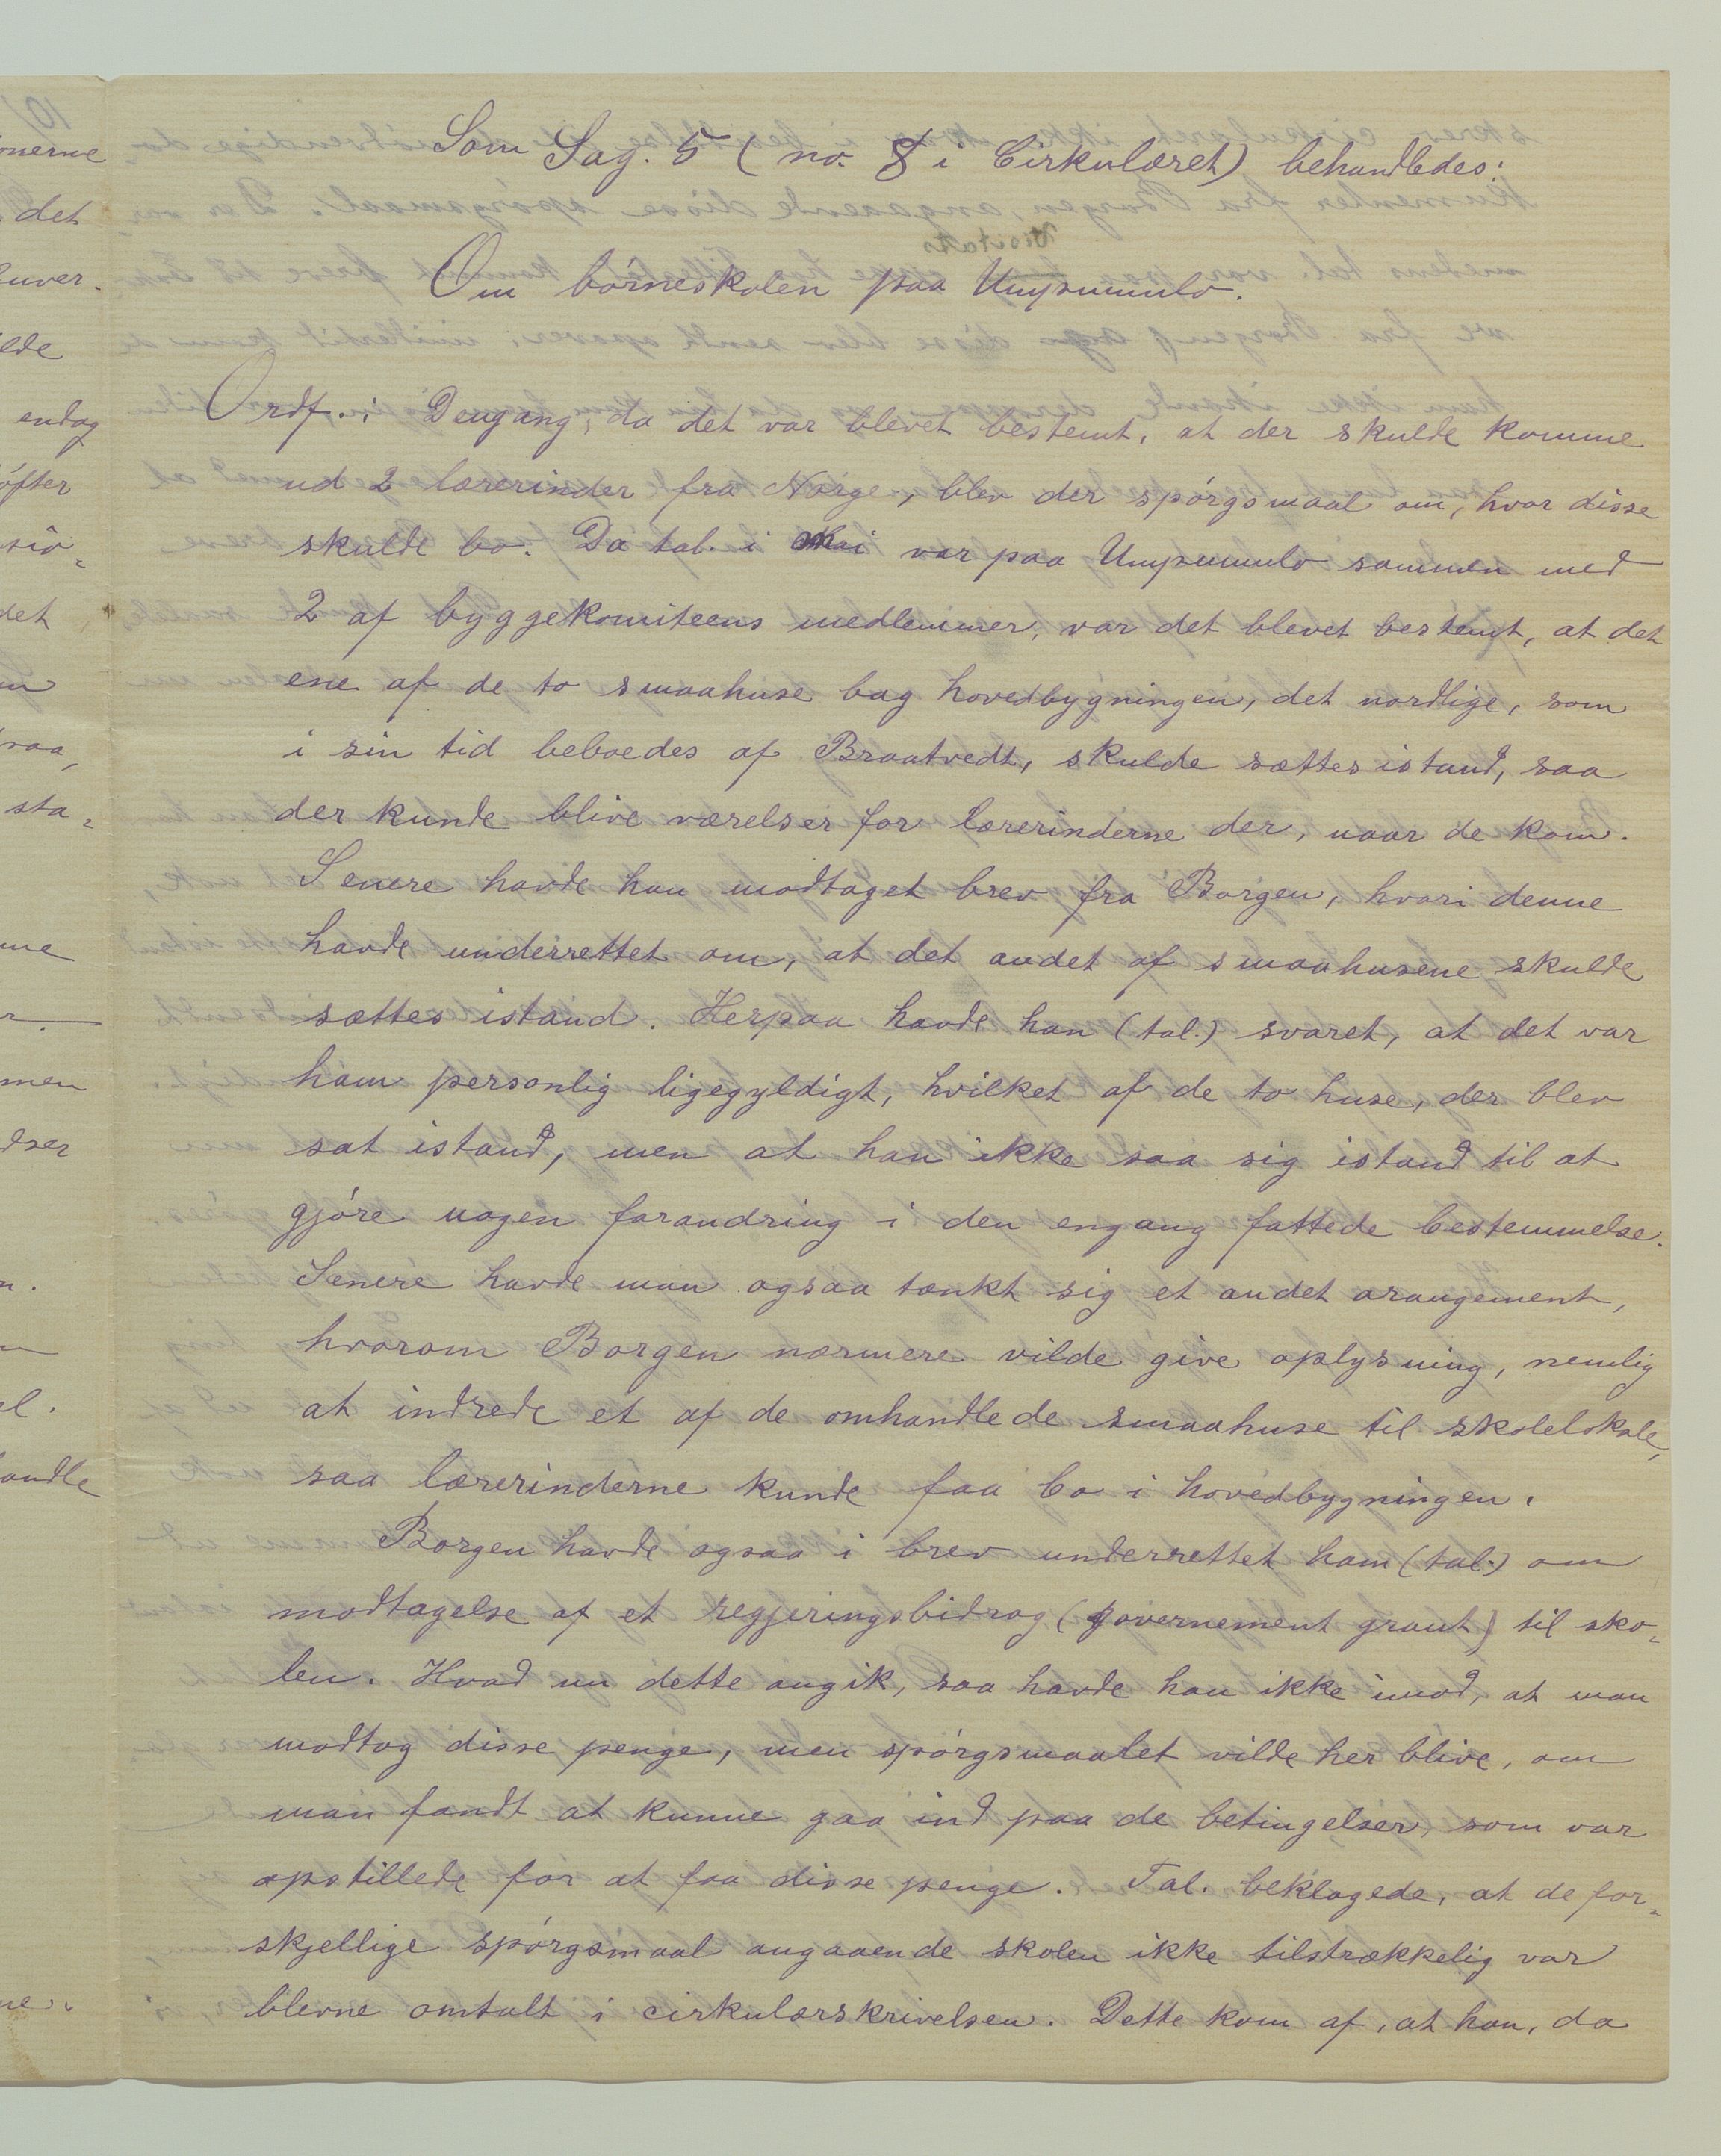 Som Sag. 5 (no. 8 i Cirkulæret) behandledes:
Om börneskolen paa Umpumulo.
Ordf.: Dengang, da det var blevet bestemt, at der skulde komme
ud 2 lærerinder fra Norge, blev der spörgsmaal om, hvor disse
skulde bo. Da tal. i mai var paa Umpumulo sammen med
2 af byggekomiteens medlemmer, var det blevet bestemt, at det
ene af de to smaahuse bag hovedbygningen, det nordlige, som
i sin tid beboedes af Braatvedt, skulde sættes istand, saa
der kunde blive værelser for lærerinderne der, naar de kom.
Senere havde han modtaget brev fra Borgen, hvori denne
havde underrettet om, at det andet af smaahusene skulde
sættes istand. Herpaa havde han (tal.) svaret, at det var
ham personlig ligegyldigt, hvilket af de to huse, der blev
sat istand, men at han ikke saa sig istand til at
gjöre nogen forandring i den engang fattede bestemmelse.
Senere havde man ogsaa tænkt sig et andet arangement,
hvorom Borgen nærmere vilde give oplysning, nemlig
at indrede et af de omhandlede smaahuse til skolelokale,
saa lærerinderne kunde faa bo i hovedbygningen.
Borgen havde ogsaa i brev underrettet ham (tal.) om
modtagelse af et regjeringsbidrag (governement grant) til sko-
len. Hvad nu dette angik, saa havde han ikke imod, at man
modtog disse penge, men spörgsmaalet vilde her blive, om
man fandt at kunne gaa ind paa de betingelser, som var
opstillede for at faa disse penge. Tal. beklagede, at de for-
skjellige spörgsmaal angaaende skolen ikke tilstrækkelig var
blevne omtalt i cirkulærskrivelsen. Dette kom af, at han, da
onerne
det
uver.
lde
endog
öfter
det
sta-
me
men
dser
andle